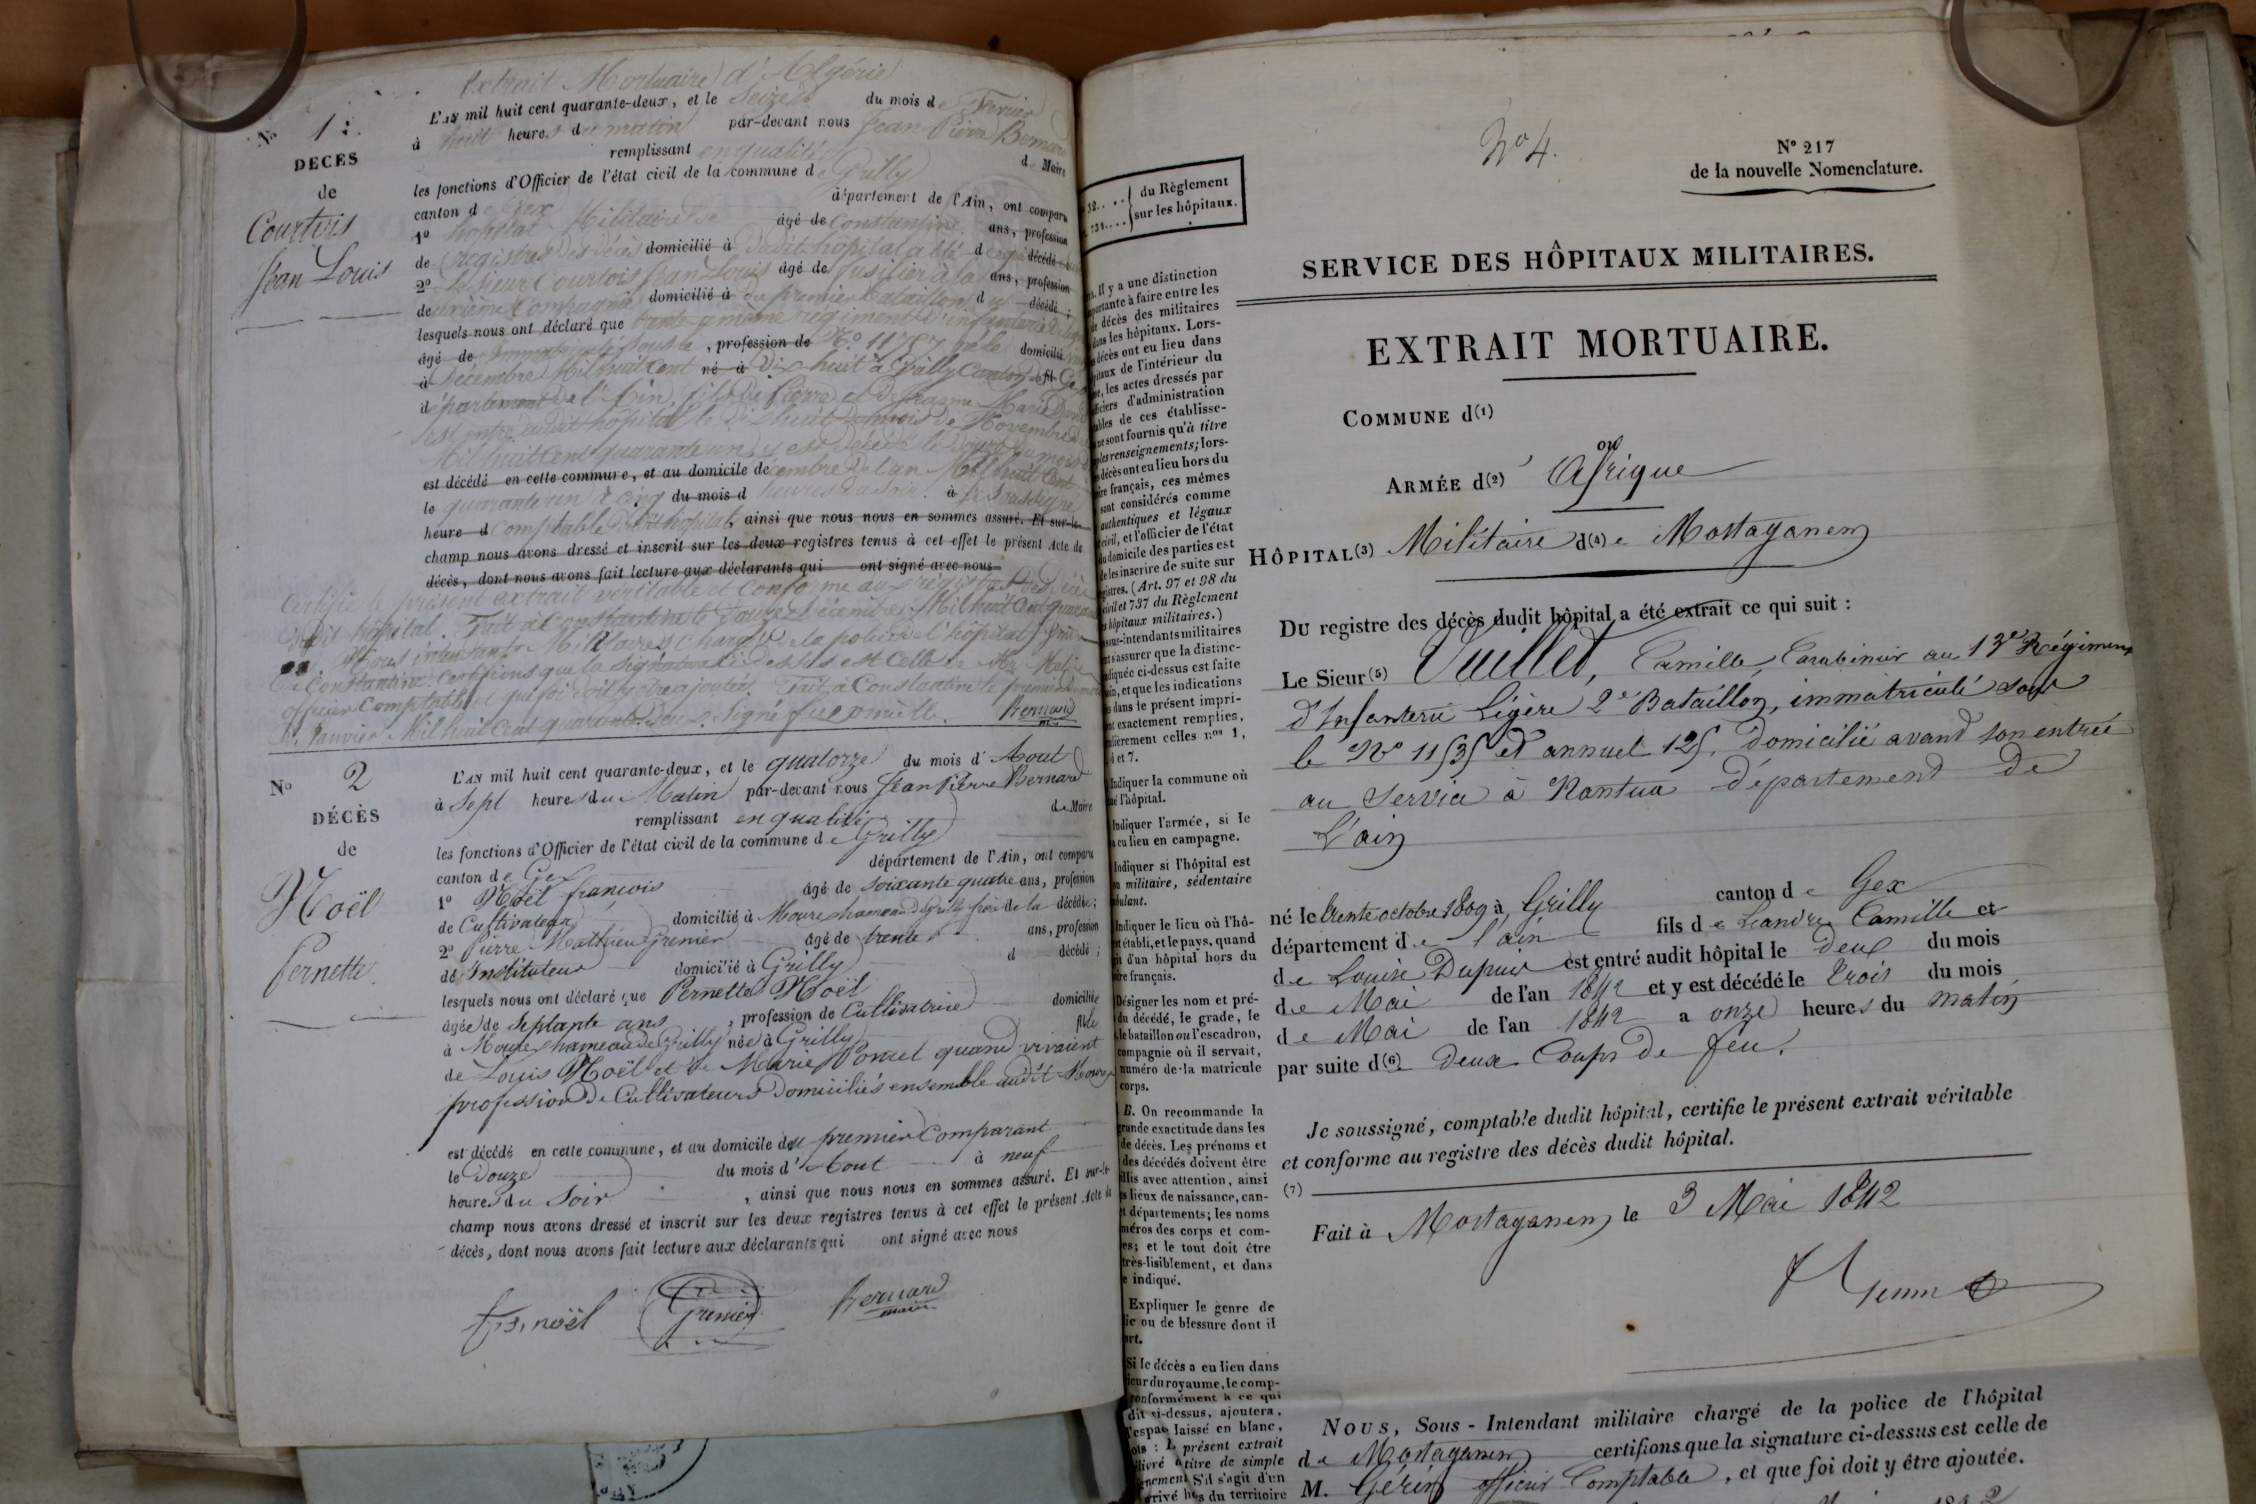 Extrait Mortuaire d'Algérie
No 1:
DECES
de
Courtois
Jean Louis
L'AN mil huit cent quarante-deux, et le Seize du mois de Fevrier
à huit heures du matin par-devant nous Jean Pierre Bernard
remplissant en qualité de Maire
les fonctions d'Officier de l'état civil de la commune de Grilly
canton de Gex département de l'Ain, ont comparu
1° hopital Militaire de âgé de Constantine ans, profession
de registres des décès domicilié à dudit hôpital a été d décédé
2° le Sieur Courtois Jean Louis âgé de fusilier à la ans, profession
deuxième Compagnie domicilié à du premier Bataillon d décédé;
lesquels nous ont déclaré que régiment d'infanterie
âgé de immatriculé sous le, profession de No 11757 né le domicilié
à Décembre Mil huit cent né à Dix huit à Grilly Canton de Gex
département de l'Ain, fils de Pierre et de Marie
est entré audit hôpital le Dix huit du mois de Novembre
Mil huit cent quarante un, y est décédé le Douze du mois
est décédé en cette commune, et au domicile de cembre de l'an Mil huit cent
le quarante un à cinq du mois d heures du soir. à
heure d Comptable dudit hopital, ainsi que nous nous en sommes assuré. Et sur-le-
champ nous avons dressé et inscrit sur les deux registres tenus à cet effet le présent Acte de
décès, dont nous avons fait lecture aux déclarants qui ont signé avec nous
Certifie le présent extrait véritable et conforme au registre des décès
dudit hôpital. Fait à Constantine le Douze Décembre Mil huit Cent quarante
Nous intendant Militaire chargé de la police de l'hôpital
de Constantine certifions que la signature ci-dessus est celle de Mr
officier Comptable et que foi doit y être ajoutée. Fait à Constantine le
Janvier Mil huit Cent quarante Deux. Signé Bernard
No 2
DÉCÈS
de
Noël
Pernette
L'AN mil huit cent quarante-deux, et le quatorze du mois d'Aout
à Sept heures du Matin par-devant nous Jean Pierre Bernard
remplissant en qualité de Maire
les fonctions d'Officier de l'état civil de la commune de Grilly
canton de Gex département de l'Ain, ont comparu
1° Noël françois âgé de soixante quatre ans, profession
de Cultivateur domicilié à Mourex hameau de Grilly frère de la décédée;
2° Pierre Mathieu Grenier âgé de trente ans, profession
de Instituteur domicilié à Grilly d décédé;
lesquels nous ont déclaré que Pernette Noël
âgée de Septante ans, profession de Cultivatrice domiciliée
à Mourex hameau de Grilly née à Grilly fille
de Louis Noël et de Marie Poncet quand vivaient
profession de Cultivateurs domiciliés ensemble audit Mourex
est décédé en cette commune, et au domicile de premier Comparant
le Douze du mois d'Aout à neuf
heures du Soir, ainsi que nous nous en sommes assuré. Et sur-le-
champ nous avons dressé et inscrit sur les deux registres tenus à cet effet le présent Acte de
décès, dont nous avons fait lecture aux déclarants qui ont signé avec nous
frs. noël Grenier Bernard
maire
No 4.
N° 217
de la nouvelle Nomenclature.
du Règlement
sur les hôpitaux.
SERVICE DES HÔPITAUX MILITAIRES.
EXTRAIT MORTUAIRE.
COMMUNE d(1)
ou
ARMÉE d(2) 'Afrique
HÔPITAL(3) Militaire d(4)e Mostaganem
DU registre des décès dudit hôpital a été extrait ce qui suit :
Le Sieur(5) Vuillet, Camille, Carabinier au 13e Régiment
d'Infanterie Légère 2e Bataillon, immatriculé sous
le No 11535 et annuel 125, domicilié avant son entrée
au Service à Nantua département de
L'ain
né le trente octobre 1809 à Grilly canton de Gex
département de l'ain fils de Leandre Camille et
de Louise Dupuis est entré audit hôpital le Deux du mois
de Mai de l'an 1842 et y est décédé le trois du mois
de Mai de l'an 1842 a onze heures du matin
par suite d(6)e Deux Coups De feu.
Je soussigné, comptable dudit hôpital, certifie le présent extrait véritable
et conforme au registre des décès dudit hôpital.
(7)
Fait à Mostaganem le 3 Mai 1842
NOUS, Sous-Intendant militaire chargé de la police de l'hôpital
de Mostaganem certifions que la signature ci-dessus est celle de
M. Gérin officier Comptable, et que foi doit y être ajoutée.
Il y a une distinction
à faire entre les
décès des militaires
dans les hôpitaux. Lors-
décès ont eu lieu dans
de l'intérieur du
les actes dressés par
d'administration
de ces établisse-
ne sont fournis qu'à titre
renseignements; lors-
décès ont eu lieu hors du
français, ces mêmes
sont considérés comme
authentiques et légaux
civil, et l'officier de l'état
du domicile des parties est
de les inscrire de suite sur
(Art. 97 et 98 du
civil et 737 du Règlement
hôpitaux militaires.)
sous-intendants militaires
s'assurer que la distinc-
ci-dessus est faite
et que les indications
dans le présent impri-
exactement remplies,
celles nos 1,
4 et 7.
Indiquer la commune où
l'hôpital.
Indiquer l'armée, si le
a eu lieu en campagne.
Indiquer si l'hôpital est
militaire, sédentaire
Indiquer le lieu où l'hô-
établi, et le pays, quand
d'un hôpital hors du
français.
Désigner les nom et pré-
du décédé, le grade, le
le bataillon ou l'escadron,
compagnie où il servait,
numéro de la matricule
corps.
B. On recommande la
grande exactitude dans les
de décès. Les prénoms et
des décédés doivent être
avec attention, ainsi
lieux de naissance, can-
départements; les noms
numéros des corps et com-
et le tout doit être
très-lisiblement, et dans
indiqué.
Expliquer le genre de
ou de blessure dont il
Si le décès a eu lieu dans
du royaume, le comp-
conformément à ce qui
dit ci-dessus, ajoutera,
l'espace laissé en blanc,
: Le présent extrait
à titre de simple
S'il s'agit d'un
hors du territoire